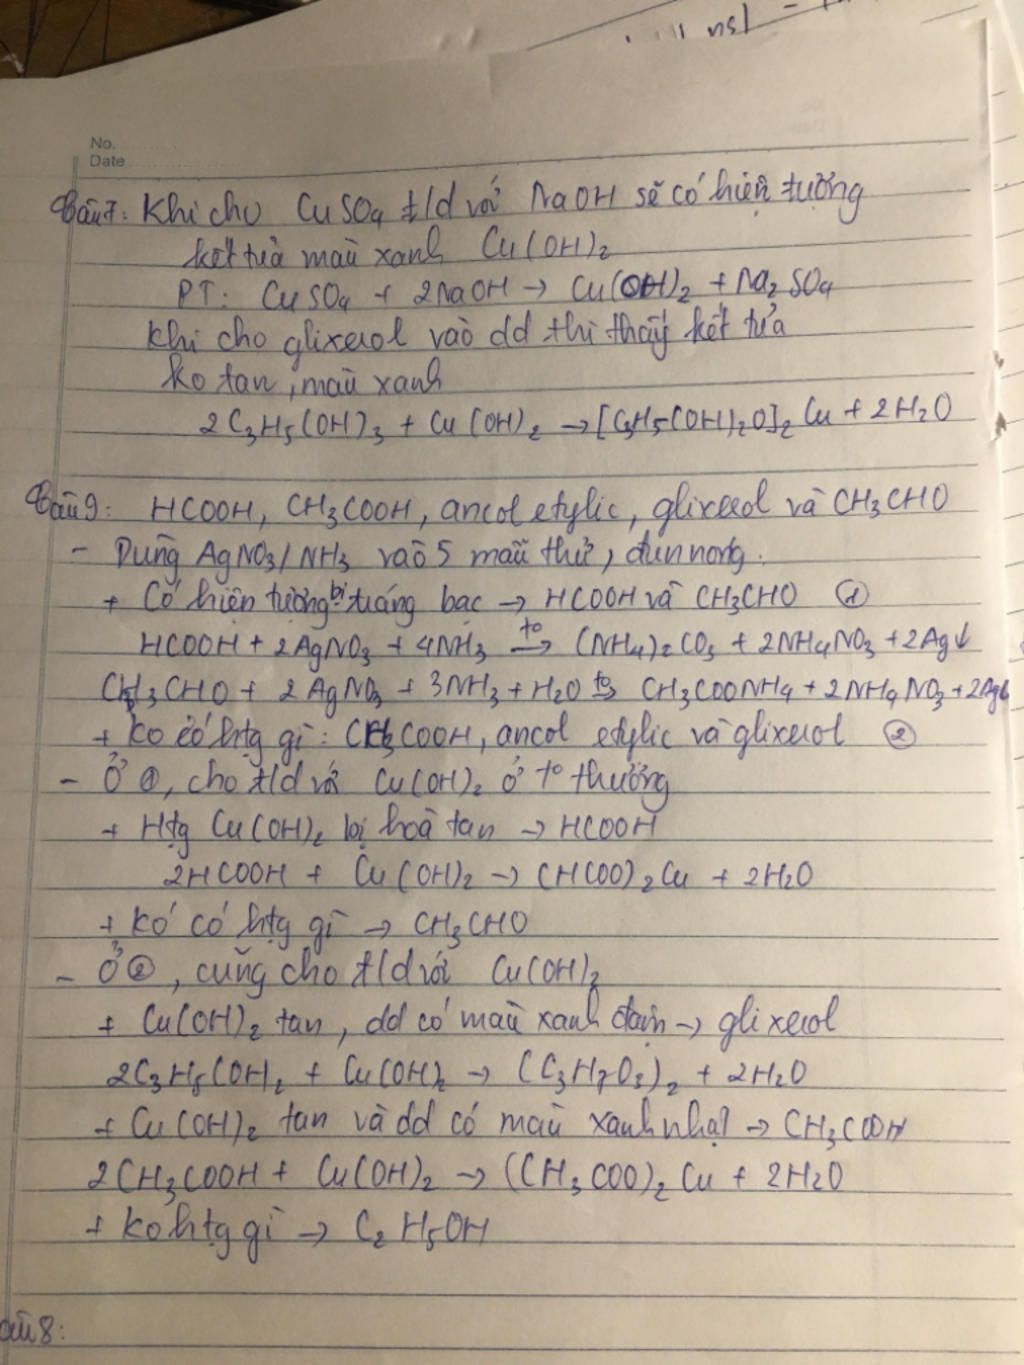 No.
Date
Câu 7: Khi cho CuSO₄ t/d với NaOH sẽ có hiện tượng
kết tủa màu xanh Cu(OH)₂
PT: CuSO₄ + 2NaOH → Cu(OH)₂ + Na₂SO₄
Khi cho glixerol vào dd thì thấy kết tủa
ko tan, màu xanh
2C₃H₅(OH)₃ + Cu(OH)₂ → [C₃H₅(OH)₂O]₂Cu + 2H₂O
Câu 9: HCOOH, CH₃COOH, ancol etylic, glixerol và CH₃CHO
- Dùng AgNO₃/NH₃ vào 5 mẫu thử, đun nóng.
+ Có hiện tượng bị tráng bạc → HCOOH và CH₃CHO ①
HCOOH + 2AgNO₃ + 4NH₃ →(t°) (NH₄)₂CO₃ + 2NH₄NO₃ + 2Ag↓
CH₃CHO + 2AgNO₃ + 3NH₃ + H₂O →(t°) CH₃COONH₄ + 2NH₄NO₃ + 2Ag↓
+ Ko có htg gì: CH₃COOH, ancol etylic và glixerol ②
- Ở ①, cho t/d với Cu(OH)₂ ở t° thường
+ Htg Cu(OH)₂ bị hoà tan → HCOOH
2HCOOH + Cu(OH)₂ → (HCOO)₂Cu + 2H₂O
+ Kó có htg gì → CH₃CHO
- Ở ②, cũng cho t/d với Cu(OH)₂
+ Cu(OH)₂ tan, dd có màu xanh đậm → glixerol
2C₃H₅(OH)₂ + Cu(OH)₂ → (C₃H₇O₃)₂ + 2H₂O
+ Cu(OH)₂ tan và dd có màu xanh nhạt → CH₃COOH
2CH₃COOH + Cu(OH)₂ → (CH₃COO)₂Cu + 2H₂O
+ Ko htg gì → C₂H₅OH
âu 8: